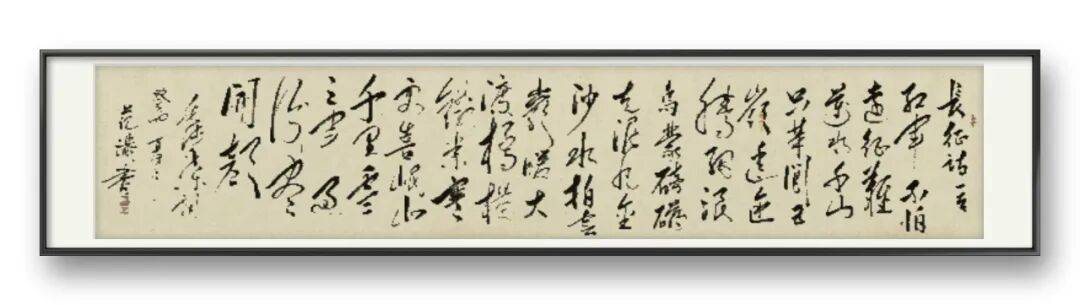 長征詩一首
紅軍不怕
遠征難
萬水千山
只等閒五
嶺逶迤
騰細浪
烏蒙磅礴
走泥丸金
沙水拍雲
崖暖大
渡橋橫
鐵索寒
更喜岷山
千里雪
三軍過
後盡
開顏
毛澤東詞
癸酉夏日
書